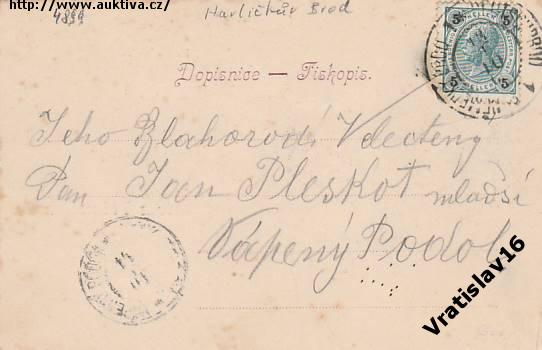 http://www.auktiva.cz/
Havlíčkův Brod
Dopisnice — Tiskopis.
5 5
5 5
Jeho Blahorodí Vdecteny
Pan Jan Pleskot mladší
Vápený Podol
Vratislav16